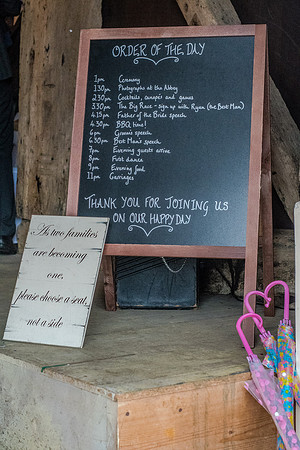 ORDER OF THE DAY
1pm Ceremony
1.30pm Photographs at the Abbey
2.30pm Cocktails, canapés and games
3.30pm The Big Race - sign up with Ryan (the Best Man)
4.15pm Father of the Bride speech
4.30pm BBQ time!
6pm Groom's speech
6.30pm Best Man's speech
7pm Evening guests arrive
8pm First dance
9pm Evening food
11pm Carriages
THANK YOU FOR JOINING US
ON OUR HAPPY DAY
As two families
are becoming
one,
please choose a seat,
not a side